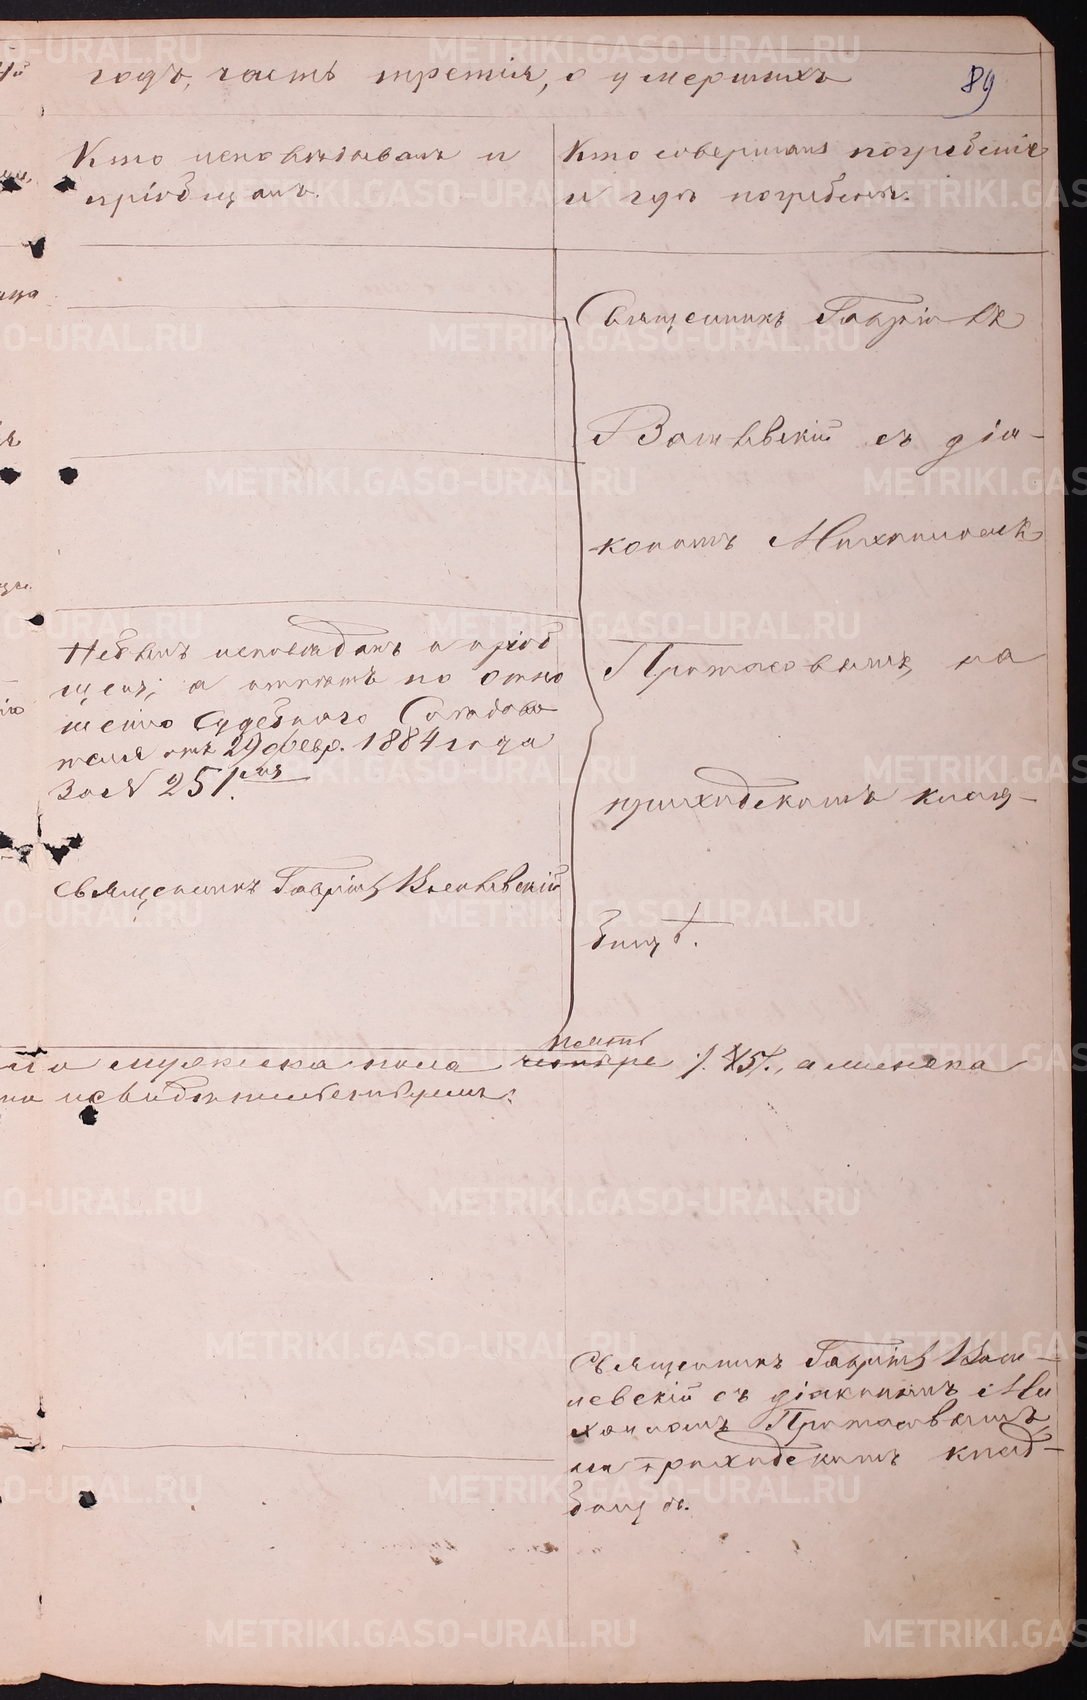 годъ, часть третія, о умершихъ
89
Кто исповѣдывалъ и
пріобщалъ.
Кто совершалъ погребеніе
и гдѣ погребенъ.
Священникъ Гавріилъ
скій съ діа-
кономъ Михаиломъ
Протасовымъ, на
приходскомъ клад-
бищѣ.
Не былъ исповѣданъ и пріоб
щенъ, а отпѣтъ по отно
шенію Судебнаго Слѣдова
теля отъ 29 февр. 1884 года
За № 251.
Священникъ Гавріилъ
пять
мужеска пола четыре /. 5/., а женска
и свидѣтельствуемъ:
Священникъ Гавріилъ
левскій съ діакономъ Ми
хаиломъ Протасовымъ
на приходскомъ клад-
бищѣ.
METRIKI.GASO-URAL.RU